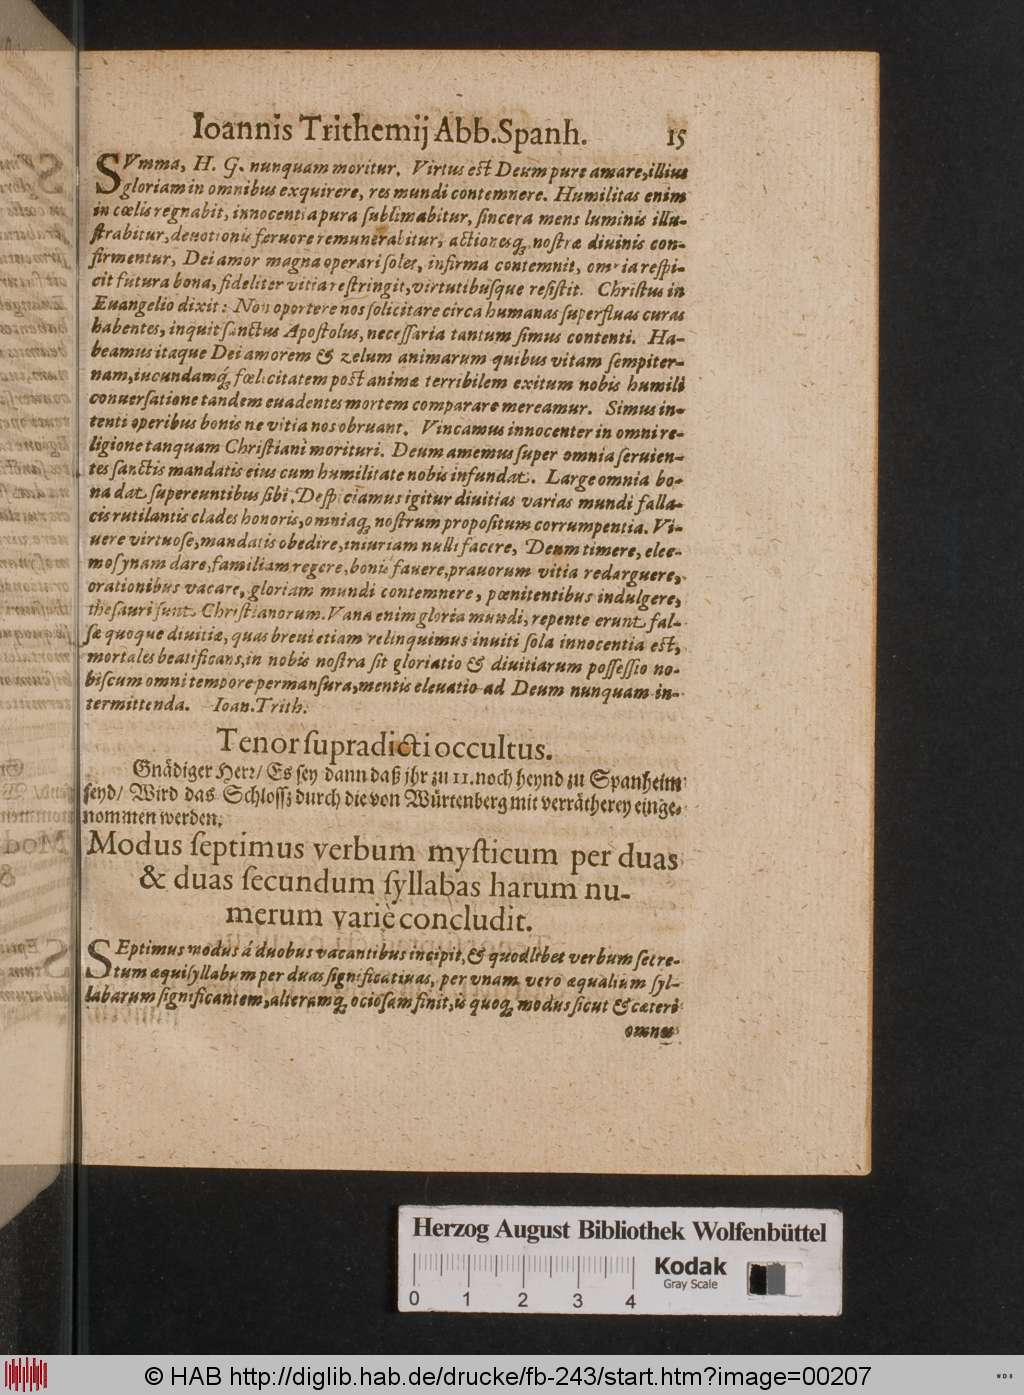 Ioannis Trithemij Abb. Spanh. 15
SVmma, H. G. nunquam moritur. Virtus est Deum pure amare, illius
gloriam in omnibus exquirere, res mundi contemnere. Humilitas enim
in cœlis regnabit, innocentia pura ſublimabitur, ſincera mens luminis illu-
ſtrabitur, deuotionis feruore remunerabitur, actionesq́; noſtræ diuinis con-
firmentur, Dei amor magna operari ſolet, infirma contemnit, omnia reſpi-
cit futura bona, fideliter vitia reſtringit, virtutibuſque reſiſtit. Chriſtus in
Euangelio dixit: Non oportere nos ſolicitare circa humanas ſuperfluas curas
habentes, inquit ſanctus Apoſtolus, neceſſaria tantum ſimus contenti. Ha-
beamus itaque Dei amorem & zelum animarum quibus vitam ſempiter-
nam, iucundamq́; fœlicitatem post animæ terribilem exitum nobis humili
conuerſatione tandem euadentes mortem comparare mereamur. Simus in-
tenti operibus bonis ne vitia nos obruant. Vincamus innocenter in omni re-
ligione tanquam Chriſtiani morituri. Deum amemus ſuper omnia ſeruien-
tes ſanctis mandatis eius cum humilitate nobis infundat. Large omnia bo-
na dat ſupereuntibus ſibi. Deſpiciamus igitur diuitias varias mundi falla-
cis rutilantis clades honoris, omniaq́; noſtrum propoſitum corrumpentia. Vi-
uere virtuoſe, mandatis obedire, iniuriam nulli facere, Deum timere, elee-
moſynam dare, familiam regere, bonis fauere, prauorum vitia redarguere,
orationibus vacare, gloriam mundi contemnere, pœnitentibus indulgere,
theſauri ſunt Chriſtianorum. Vana enim gloria mundi, repente erunt fal-
ſæ quoque diuitiæ, quas breui etiam relinquimus inuiti ſola innocentia est,
mortales beatificans, in nobis noſtra ſit gloriatio & diuitiarum poſſeſſio no-
biſcum omni tempore permanſura, mentis eleuatio ad Deum nunquam in-
termittenda. Ioan. Trith.
Tenor ſupradicti occultus.
Gnädiger Herr/ Es ſey dann daß jhr zu 11. noch heynd zu Spanheim
ſeyd/ Wird das Schloſſz durch die von Würtenberg mit verrätherey einge-
nommen werden.
Modus ſeptimus verbum myſticum per duas
& duas ſecundum ſyllabas harum nu-
merum variè concludit.
SEptimus modus á duobus vacantibus incipit, & quodlibet verbum ſecre-
tum æquiſyllabum per duas ſignificatiuas, per vnam vero æqualium ſyl-
labarum ſignificantem, alteramq́; ocioſam finit, is quoq́; modus ſicut & cæteri
omnes
Herzog August Bibliothek Wolfenbüttel
Kodak
Gray Scale
0 1 2 3 4
© HAB http://diglib.hab.de/drucke/fb-243/start.htm?image=00207